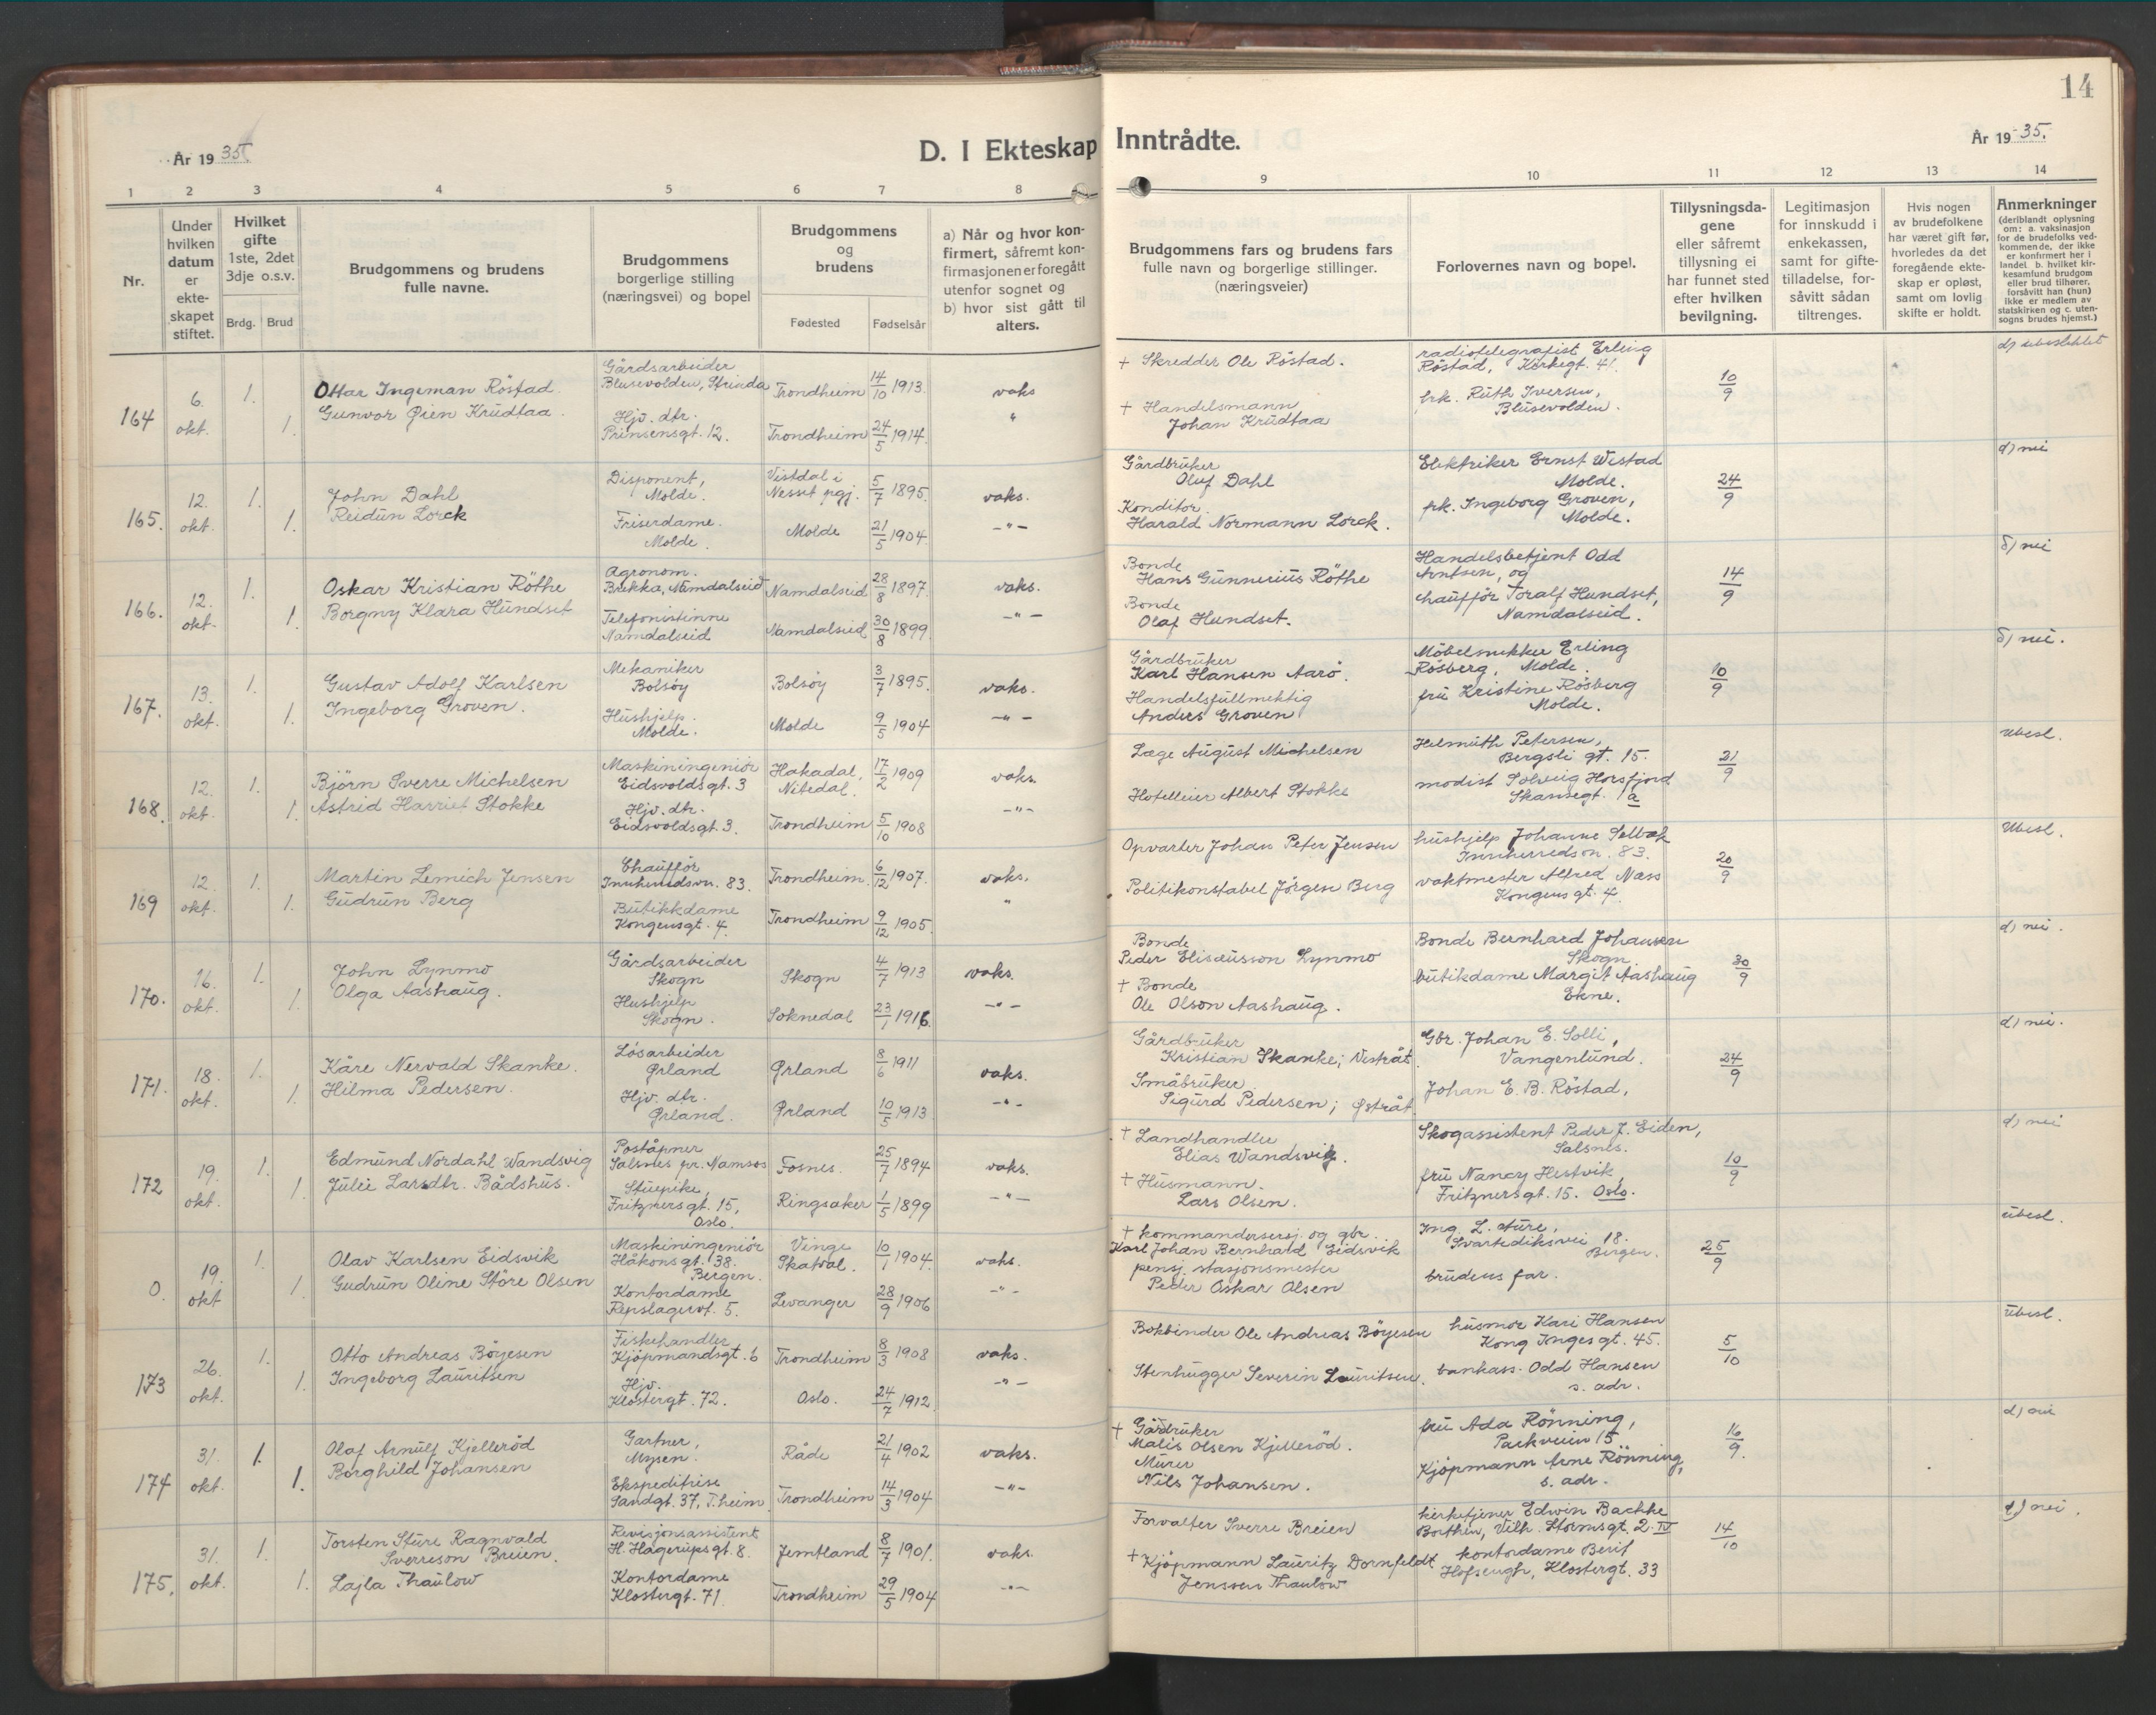 14
År 1935.
D. I Ekteskap Inntrådte.
År 1935.
1 2 3 4 5 6 7 8 9 10 11 12 13 14
Nr.
Under hvilken datum er ekteskapet stiftet.
Hvilket gifte 1ste, 2det 3dje o.s.v.
Brdg. Brud
Brudgommens og brudens fulle navne.
Brudgommens borgerlige stilling (næringsvei) og bopel
Brudgommens og brudens
Fødested Fødselsår
a) Når og hvor konfirmert, såfremt konfirmasjonen er foregått utenfor sognet og b) hvor sist gått til alters.
Brudgommens fars og brudens fars fulle navn og borgerlige stillinger. (næringsveier)
Forlovernes navn og bopel.
Tillysningsdagene eller såfremt tillysning ei har funnet sted efter hvilken bevilgning.
Legitimasjon for innskudd i enkekassen, samt for giftetilladelse, forsåvitt sådan tiltrenges.
Hvis nogen av brudefolkene har været gift før, hvorledes da det foregående ekteskap er opløst, samt om lovlig skifte er holdt.
Anmerkninger (deriblandt oplysning om: a. vaksinasjon for de brudefolks vedkommende, der ikke er konfirmert her i landet. b. hvilket kirkesamfund brudgom eller brud tilhører, forsåvitt han (hun) ikke er medlem av statskirken og c. utensogns brudes hjemst.)
164 6. okt. 1. 1.
Ottar Ingeman Röstad.
Gunvor Øien Krüdtaa.
Gårdsarbeider
Blusevolden, Strinda
Trondheim 14/10 1913. vaks
Hjv. dtr.
Prinsensgt. 12.
Trondheim 24/5 1914. "
+ Skredder Ole Röstad.
+ Handelsmann
Johan Krüdtaa
radiotelegrafist Erling
Röstad, Kirkegt. 41.
frk. Rüth Iversen,
Blüsevolden.
10/9
d) ubesluttet
165. 12. okt. 1. 1.
John Dahl
Reidün Lorck
Disponent,
Molde.
Vistdal i
Nesset pgj. 5/7 1895. vaks.
Friserdame.
Molde.
Molde 21/5 1904 -"-
Gårdbrüker
Oluf Dahl
Konditor
Harald Normann Lorck.
Elektriker Ernst Wistad
Molde.
frk. Ingeborg Groven,
Molde.
24/9
d) nei
166. 12. okt. 1. 1.
Oskar Kristian Röthe
Borgny Klara Hündset
Agronom.
Brekka, Namdalseid
Namdalseid 28/8 1897. vaks.
Telefonistinne
Namdalseid
Namdalseid 30/8 1899 -"-
Bonde
Hans Günnerius Röthe
Bonde
Olaf Hundset.
Handelsbetjent Odd
Arntsen, og
chaufför Toralf Hundset,
Namdalseid.
14/9
d) nei
167. 13. okt. 1. 1.
Gustav Adolf Karlsen
Ingeborg Groven.
Mekaniker
Bolsöy
Bolsöy 3/7 1895. vaks.
Hüshjelp.
Molde.
Molde 9/5 1904 -"-
Gårdbrüker
Karl Hansen Aarö.
Handelsfüllmektig
Anders Groven
Möbelsnekker Erling
Rösberg, Molde.
frü Kristine Rösberg
Molde.
10/9
d) nei.
168. 12. okt. 1. 1.
Björn Sverre Michelsen
Astrid Harriet Stokke
Maskiningeniör
Eidsvoldsgt. 3
Hakadal,
Nitedal. 17/2 1909 vaks.
Hjv. dtr.
Eidsvoldsgt. 3.
Trondheim 5/10 1908 -"-
Læge August Michelsen
Hotelleier Albert Stokke
Helmüth Petersen,
Bergsli gt. 15.
modist Solveig Horsfjord
Skansegt. 1a
21/9
ubesl.
169 12. okt. 1. 1.
Martin Lemich Jensen
Güdrün Berg
Chaufför
Innherredsvn. 83.
Trondheim. 6/12 1907. vaks.
Bütikkdame
Kongensgt. 4.
Trondheim 9/12 1905. "
Opvarter Johan Peter Jensen
Politikonstabel Jörgen Berg
hüshjelp Johanne Selbæk
Innherredsvn. 83.
vaktmester Alfred Næss
Kongens gt. 4.
20/9
Ubesl.
170. 16. okt. 1. 1.
John Lynmo
Olga Aashaüg.
Gårdsarbeider
Skogn
Skogn 4/7 1913 vaks.
Hushjelp
Skogn.
Soknedal 23/1 1916. -"-
Bonde
Peder Elisæusson Lynmo
+ Bonde
Ole Olson Aashaüg.
Bonde Bernhard Johansen
Skogn.
bütikdame Margit Aashaüg
Ekne.
30/9
d) nei.
171. 18. okt. 1. 1.
Kåre Nervald Skanke.
Hilma Pedersen.
Lösarbeider
Ørland
Ørland 8/6 1911 vaks.
Hjv. dtr.
Ørland.
Ørland 10/5 1913 -"-
Gårdbrüker
Kristian Skanke; Vestråt
Småbrüker
Sigürd Pedersen; Østråt
Gbr. Johan E. Solli,
Vangenlünd.
Johan E. B. Röstad,
24/9
d) nei.
172 19. okt. 1. 1.
Edmünd Nordahl Wandsvig
Julie Larsdtr. Bådshüs.
Poståpner
Salsnes pr. Namsos
Fosnes. 25/7 1894 vaks.
Stüepike,
Fritznersgt. 15,
Oslo.
Ringsaker 1/5 1899 -"-
+ Landhandler
Elias Wandsvig.
+ Hüsmann.
Lars Olsen.
Skogassistent Peder J. Eiden,
Salsnes.
frü Nancy Hestvik,
Fritznersgt. 15. Oslo.
10/9
d) nei
0. 19. okt 1. 1.
Olav Karlsen Eidsvik
Gudrün Oline Störe Olsen
Maskiningeniör
Håkonsgt. 38.
Bergen.
Vinge
Skatval. 10/1 1904. vaks.
Kontordame
Repslagervt. 5.
Levanger 28/9 1906 -"-
+ kommandersersj. og gbr.
Karl Johan Bernhard Eidsvik
pensj. stasjonsmester
Peder Oskar Olsen
Ing. L. Sture,
Svartediksvei 18.
Bergen.
brüdens far.
25/9
übesl.
173 26. okt. 1. 1.
Otto Andreas Böyesen
Ingeborg Laüritsen
Fiskehandler
Kjöpmandsgt. 6
Trondheim 8/3 1908 vaks.
Hjv.
Klostergt. 72.
Oslo. 24/7 1912 -"-
Bokbinder Ole Andreas Böyesen
Stenhugger Severin Lauritsen.
hüsmor Kari Hansen
Kong Inges gt. 45.
bankass. Odd Hansen
s. adr.
5/10
übesl.
174 31. okt. 1. 1.
Olaf Arnülf Kjelleröd
Borghild Johansen
Gartner,
Mysen.
Råde 21/4 1902 vaks.
Ekspeditrise
Sandgt. 37, T.heim
Trondheim 14/3 1904 -"-
+ Gårdrüker
Matis Olsen Kjelleröd.
Mürer
Nils Johansen.
frü Ada Rönning,
Parkveien 15
Kjöpmann Arne Rönning,
s. adr.
16/9.
d) nei
175. 31. okt. 1. 1.
Torsten Stüre Ragnvald
Sverreson Breien.
Lajla Thaülow
Revisjonsassistent
H. Hagerüpsgt. 8.
Jemtland 8/7 1901. vaks.
Kontordame
Klostergt. 71
Trondheim 29/5 1904 -"-
Forvalter Sverre Breien
+ Kjöpmann Lauritz Dornfeldt
Jenssen Thaulow
kirketjener Edwin Bachke
Borthen, Vilh. Stormsgt. 2. IV
kontordame Berit
Klostergt. 33
14/10
d) nei.